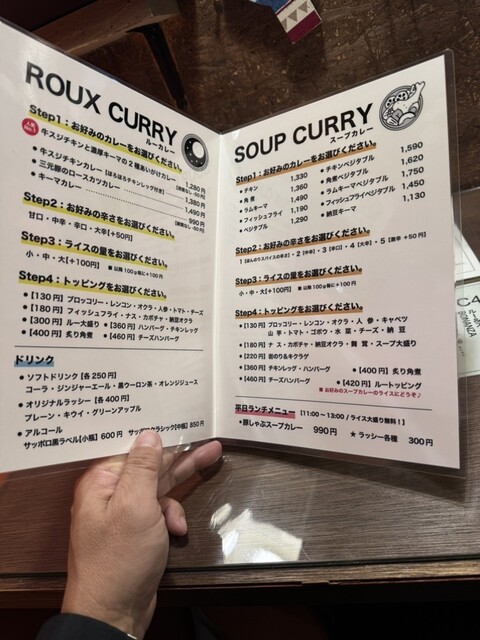 ROUX CURRY
ルーカレー
Step1：お好みのカレーをお選びください。
人気No.1
牛スジチキンと濃厚キーマの2種あいがけカレー
1,280円
牛スジチキンカレー【ほろほろチキンレッグ付き】
1,380円
三元豚のロースカツカレー
1,490円
キーマカレー
990円
Step2：お好みの辛さをお選びください。
甘口・中辛・辛口・大辛[+50円]
Step3：ライスの量をお選びください。
小・中・大[+100円] ■以降100g毎に+100円
Step4：トッピングをお選びください。
●[130円] ブロッコリー・レンコン・オクラ・人参・トマト・チーズ
●[180円] フィッシュフライ・ナス・カボチャ・納豆オクラ
●[300円] ルー大盛り ●[360円] ハンバーグ・チキンレッグ
●[400円] 炙り角煮 ●[460円] チーズハンバーグ
ドリンク
●ソフトドリンク [各250円]
コーラ・ジンジャーエール・黒ウーロン茶・オレンジジュース
●オリジナルラッシー [各400円]
プレーン・キウイ・グリーンアップル
●アルコール
サッポロ黒ラベル[小瓶] 600円 サッポロクラシック[中瓶] 850円
SOUP CURRY
スープカレー
Step1：お好みのカレーをお選びください。
●チキン 1,330
●角煮 1,360
●ラムキーマ 1,490
●フィッシュフライ 1,190
●ベジタブル 1,290
●チキンベジタブル 1,590
●角煮ベジタブル 1,620
●ラムキーマベジタブル 1,750
●フィッシュフライベジタブル 1,450
●納豆キーマ 1,130
Step2：お好みの辛さをお選びください。
1[ほんのりスパイスの辛さ]・2[中辛]・3[辛口]・4[大辛]・5[激辛 +50円]
Step3：ライスの量をお選びください。
小・中・大[+100円] ■以降100g毎に+100円
Step4：トッピングをお選びください。
●[130円] ブロッコリー・レンコン・オクラ・人参・キャベツ
山芋・トマト・ゴボウ・水菜・チーズ・納豆
●[180円] ナス・カボチャ・納豆オクラ・舞茸・スープ大盛り
●[220円] 岩のり&キクラゲ
●[360円] チキンレッグ・ハンバーグ ●[400円] 炙り角煮
●[460円] チーズハンバーグ ●[420円] ルートッピング
■お好みのスープカレーのライスにどうぞ♪
平日ランチメニュー [11:00〜13:00 / ライス大盛り無料！]
●豚しゃぶスープカレー 990円 ★ラッシー各種 300円
BONANZA